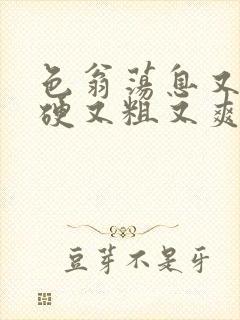 色翁荡息又
硬又粗又爽
豆芽不是牙